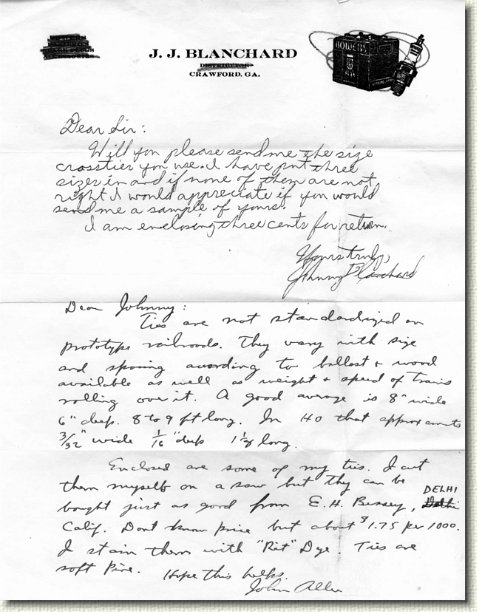 J. J. BLANCHARD
CRAWFORD, GA.
Dear Sir:
Will you please send me the size
crossties you use. I have put three
sizes in and if none of them are not
right I would appreciate if you would
send me a sample of yours.
I am enclosing three cents for return.
Yours truly,
Johnny Blanchard
Dear Johnny:
Ties are not standardized on
prototype railroads. They vary with size
and spacing according to ballast + wood
available as well as weight + speed of trains
rolling over it. A good average is 8" wide
6" deep. 8 to 9 ft long. In HO that approximates
3/32" wide 1/16" deep 1 1/4 long.
Enclosed are some of my ties. I cut
them myself on a saw but they can be
bought just as good from E. H. Bessey, DELHI
Calif. Dont know price but about $1.75 per 1000.
I stain them with "Rit" Dye. Ties are
soft Pine. Hope this helps.
John Allen